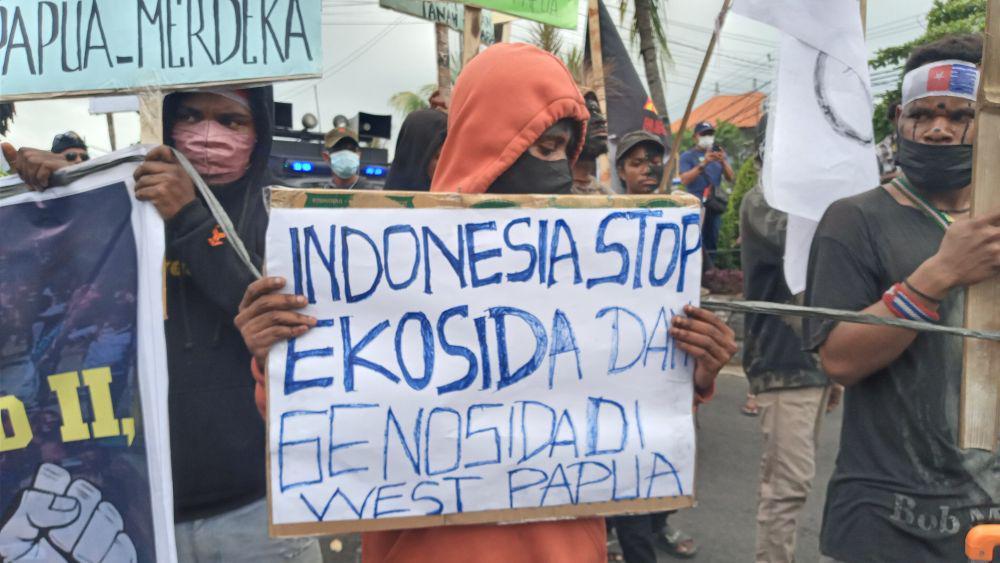 PAPUA-MERDEKA
TANAH
INDONESIA STOP
EKOSIDA DAN
GENOSIDA DI
WEST PAPUA
D II,
Bob M